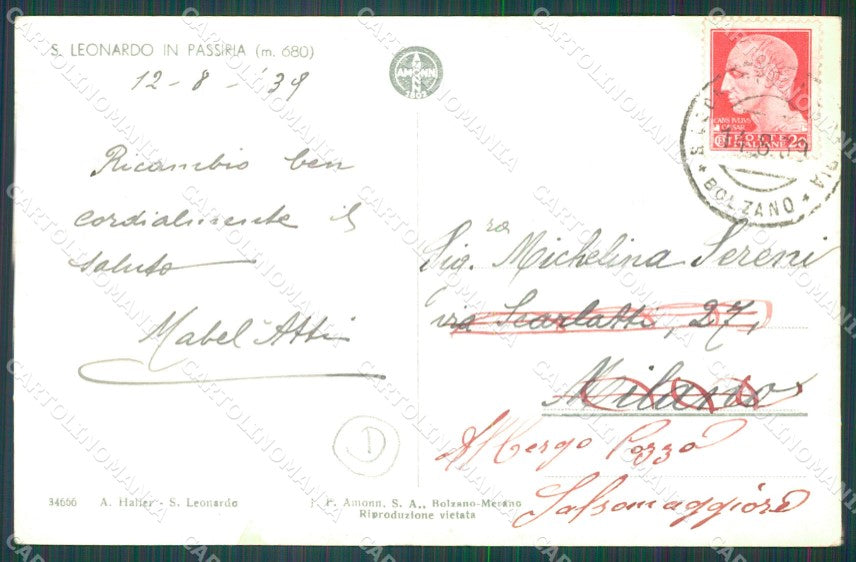 S. LEONARDO IN PASSIRIA (m. 680)
12-8-'39
AMONN
1802
Ricambio ben
cordialmente il
saluto
Mabel Atti
CAIVS IVLIVS
CAESAR
POSTE
ITALIANE
20
BOLZANO
Sig.ra Michelina Sereni
via Scarlatti, 27,
Milano
Albergo Pozzo
Salsomaggiore
D
34666 A. Haller - S. Leonardo
F. Amonn, S. A., Bolzano-Merano
Riproduzione vietata
CARTOLINOMANIA